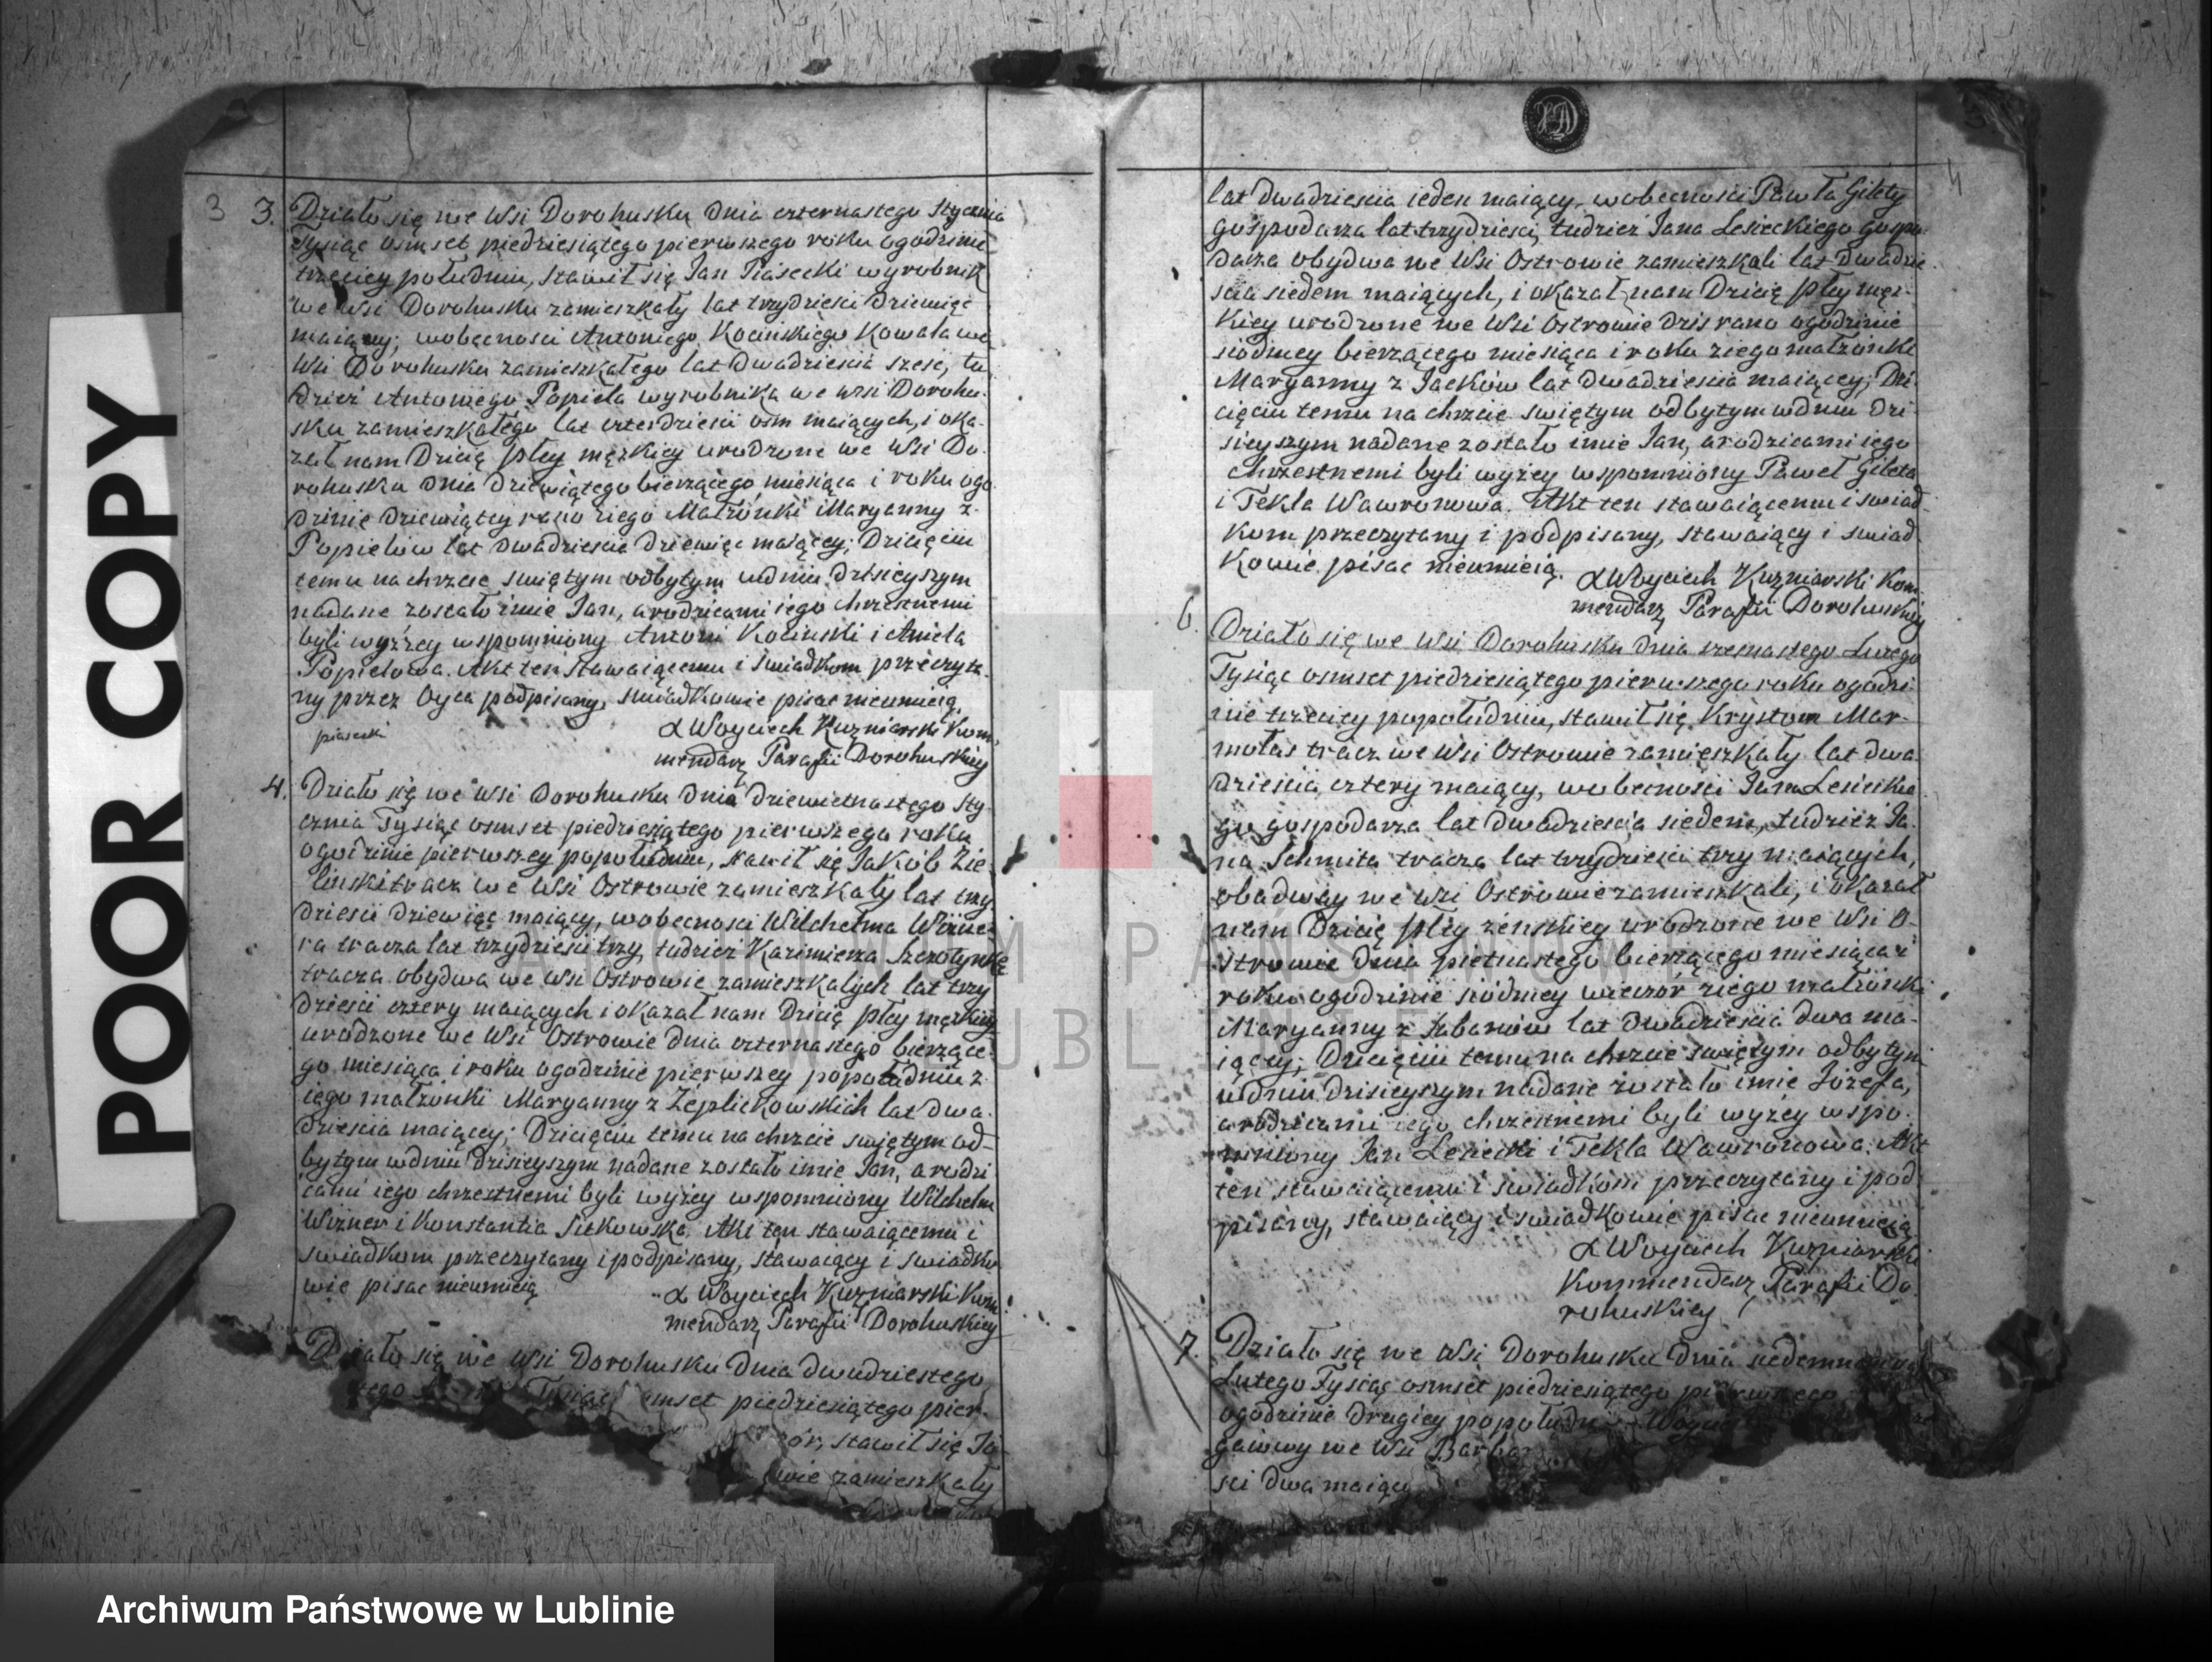 POOR COPY
3
3. Działo się we Wsi Dorohusku dnia czternastego Stycznia
Tysiąc osmset piedziesiątego pierwszego roku ogodzinie
trzeciey południu, stawił się Jan Piasecki wyrobnik
we Wsi Dorohusku zamieszkały lat trzydziesci dziewięć
maiący; wobecnosci Antoniego Kocinskiego Kowala we
Wsi Dorohusku zamieszkałego lat dwadziescia szesc, tu
dzież Antoniego Popiela wyrobnika we wsi Dorohu-
sku zamieszkałego lat czterdziesci osm maiących, i oka-
zał nam Dzicią płcy męzkiey urodzone we Wsi Do-
rohusku dnia dziewiątego bierzącego miesiąca i roku ogo
dzinie dziewiątey rano ziego Małżonki Maryanny z
Popielów lat dwadziescia dziewięc maiącey; Dziecięciu
temu na chrzcie swiętym odbytym wdniu dzisieyszym
nadane zostało imie Jan, arodzicami iego chrzestnemi
byli wyżzey wspomniony Antoni Kocinski i Aniela
Popielowa. Akt ten stawaiącemu i swiadkom przeczyta-
ny przez Oyca podpisany, swiadkowie pisac nieumieią
piasecki
X Woyciech Kuzniarski Kom
mendarz Parafii Dorohuskiey
4. Działo się we Wsi Dorohusku dnia dziewietnastego Sty
cznia Tysiąc osmset piedziesiątego pierwszego roku
ogodzinie pierwszey popołudniu, stawił się Jakób Zie
linski tracz we Wsi Ostrowie zamieszkały lat trzy
dziesci dziewięc maiący, wobecnosci Wilchelma Wizne-
ra tracza lat trzydziesci trzy, tudzież Kazimierza Szczotynkę
tracza obydwa we Wsi Ostrowie zamieszkałych lat trzy
dziesci cztery maiących i okazał nam Dzicią płcy męzkiey
urodzone we Wsi Ostrowie dnia czternastego bierzące-
go miesiąca i roku ogodzinie pierwszey popołudniu z
iego małżonki Maryanny z Zeplickowskich lat dwa-
dziescia maiącey; Dziecięciu temu na chrzcie swiętym od-
bytym wdniu dzisieyszym nadane zostało imie Jan, a rodzi
cami iego chrzestnemi byli wyżey wspomniony Wilchelm
Wizner i Konstantia Sitkowska. Akt ten stawaiącemu i
swiadkom przeczytany i podpisany, stawaiący i swiadko
wie pisac nieumieią
X Woyciech Kuzniarski Kom
mendarz Parafii Dorohuskiey
Działo się we Wsi Dorohusku dnia dwudziestego
Tysiąc osmset piedziesiątego pier-
stawił się Ja
zamieszkały
4
lat dwadziescia ieden maiący, wobecnosci Pawła Gilety
gospodarza lat trzydziesci, tudzież Jana Lesieckiego gospo-
darza obydwa we Wsi Ostrowie zamieszkali lat dwadzie
scia siedem maiących, i okazał nam Dzicię płcy męz-
kiey urodzone we Wsi Ostrowie dzis rano ogodzinie
siodmey bierzącego miesiąca i roku ziego małżonki
Maryanny z Jacków lat dwadziescia maiącey; Dzi-
cięciu temu na chrzcie swiętym odbytym wdniu dzi-
sieyszym nadane zostało imie Jan, arodzicami iego
chrzestnemi byli wyżey wspomniony Paweł Gileta
i Tekla Wawronowa. Akt ten stawaiącemu i swiad-
kom przeczytany i podpisany, stawaiący i swiad
kowie pisac nieumieią.
X Woyciech Kuzniarski Kom
mendarz Parafii Dorohuskiey
6. Działo się we Wsi Dorohusku dnia szesnastego Lutego
Tysiąc osmset piedziesiątego pierwszego roku ogodzi-
nie trzeciey popołudniu, stawił się Krystom Mar-
motas tracz we Wsi Ostrowie zamieszkały lat dwa
dziescia cztery maiący, wobecnosci Jana Lesieckie
go gospodarza lat dwadziescia siedem, tudzież Ja-
na Schmita tracza lat trzydziesci trzy maiących,
obadway we Wsi Ostrowie zamieszkali, i okazał
nam Dzicię płcy żenskiey urodzone we Wsi O-
strowie dnia pietnastego bierzącego miesiąca i
roku ogodzinie siódmey wieczór ziego małżonki
Maryanny z Łabanów lat dwadziescia dwa ma-
iącey; Dziecięciu temu na chrzcie swiętym odbytym
wdniu dzisieyszym nadane zostało imie Józefa,
arodzicami iego chrzestnemi byli wyżey wspo-
mniony Jan Lesiecki i Tekla Wawronowa. Akt
ten stawaiącemu i swiadkom przeczytany i pod
pisany, stawaiący i swiadkowie pisac nieumieią
X Woyciech Kuzniarski
Kommendarz Parafii Do-
rohuskiey
7. Działo się we Wsi Dorohusku dnia
Lutego Tysiąc osmset piedziesiątego pierwszego
ogodzinie drugiey popołudniu
gaiowy we Wsi
sci dwa maiący
ARCHIWUM PAŃSTWOWE
W LUBLINIE
Archiwum Państwowe w Lublinie